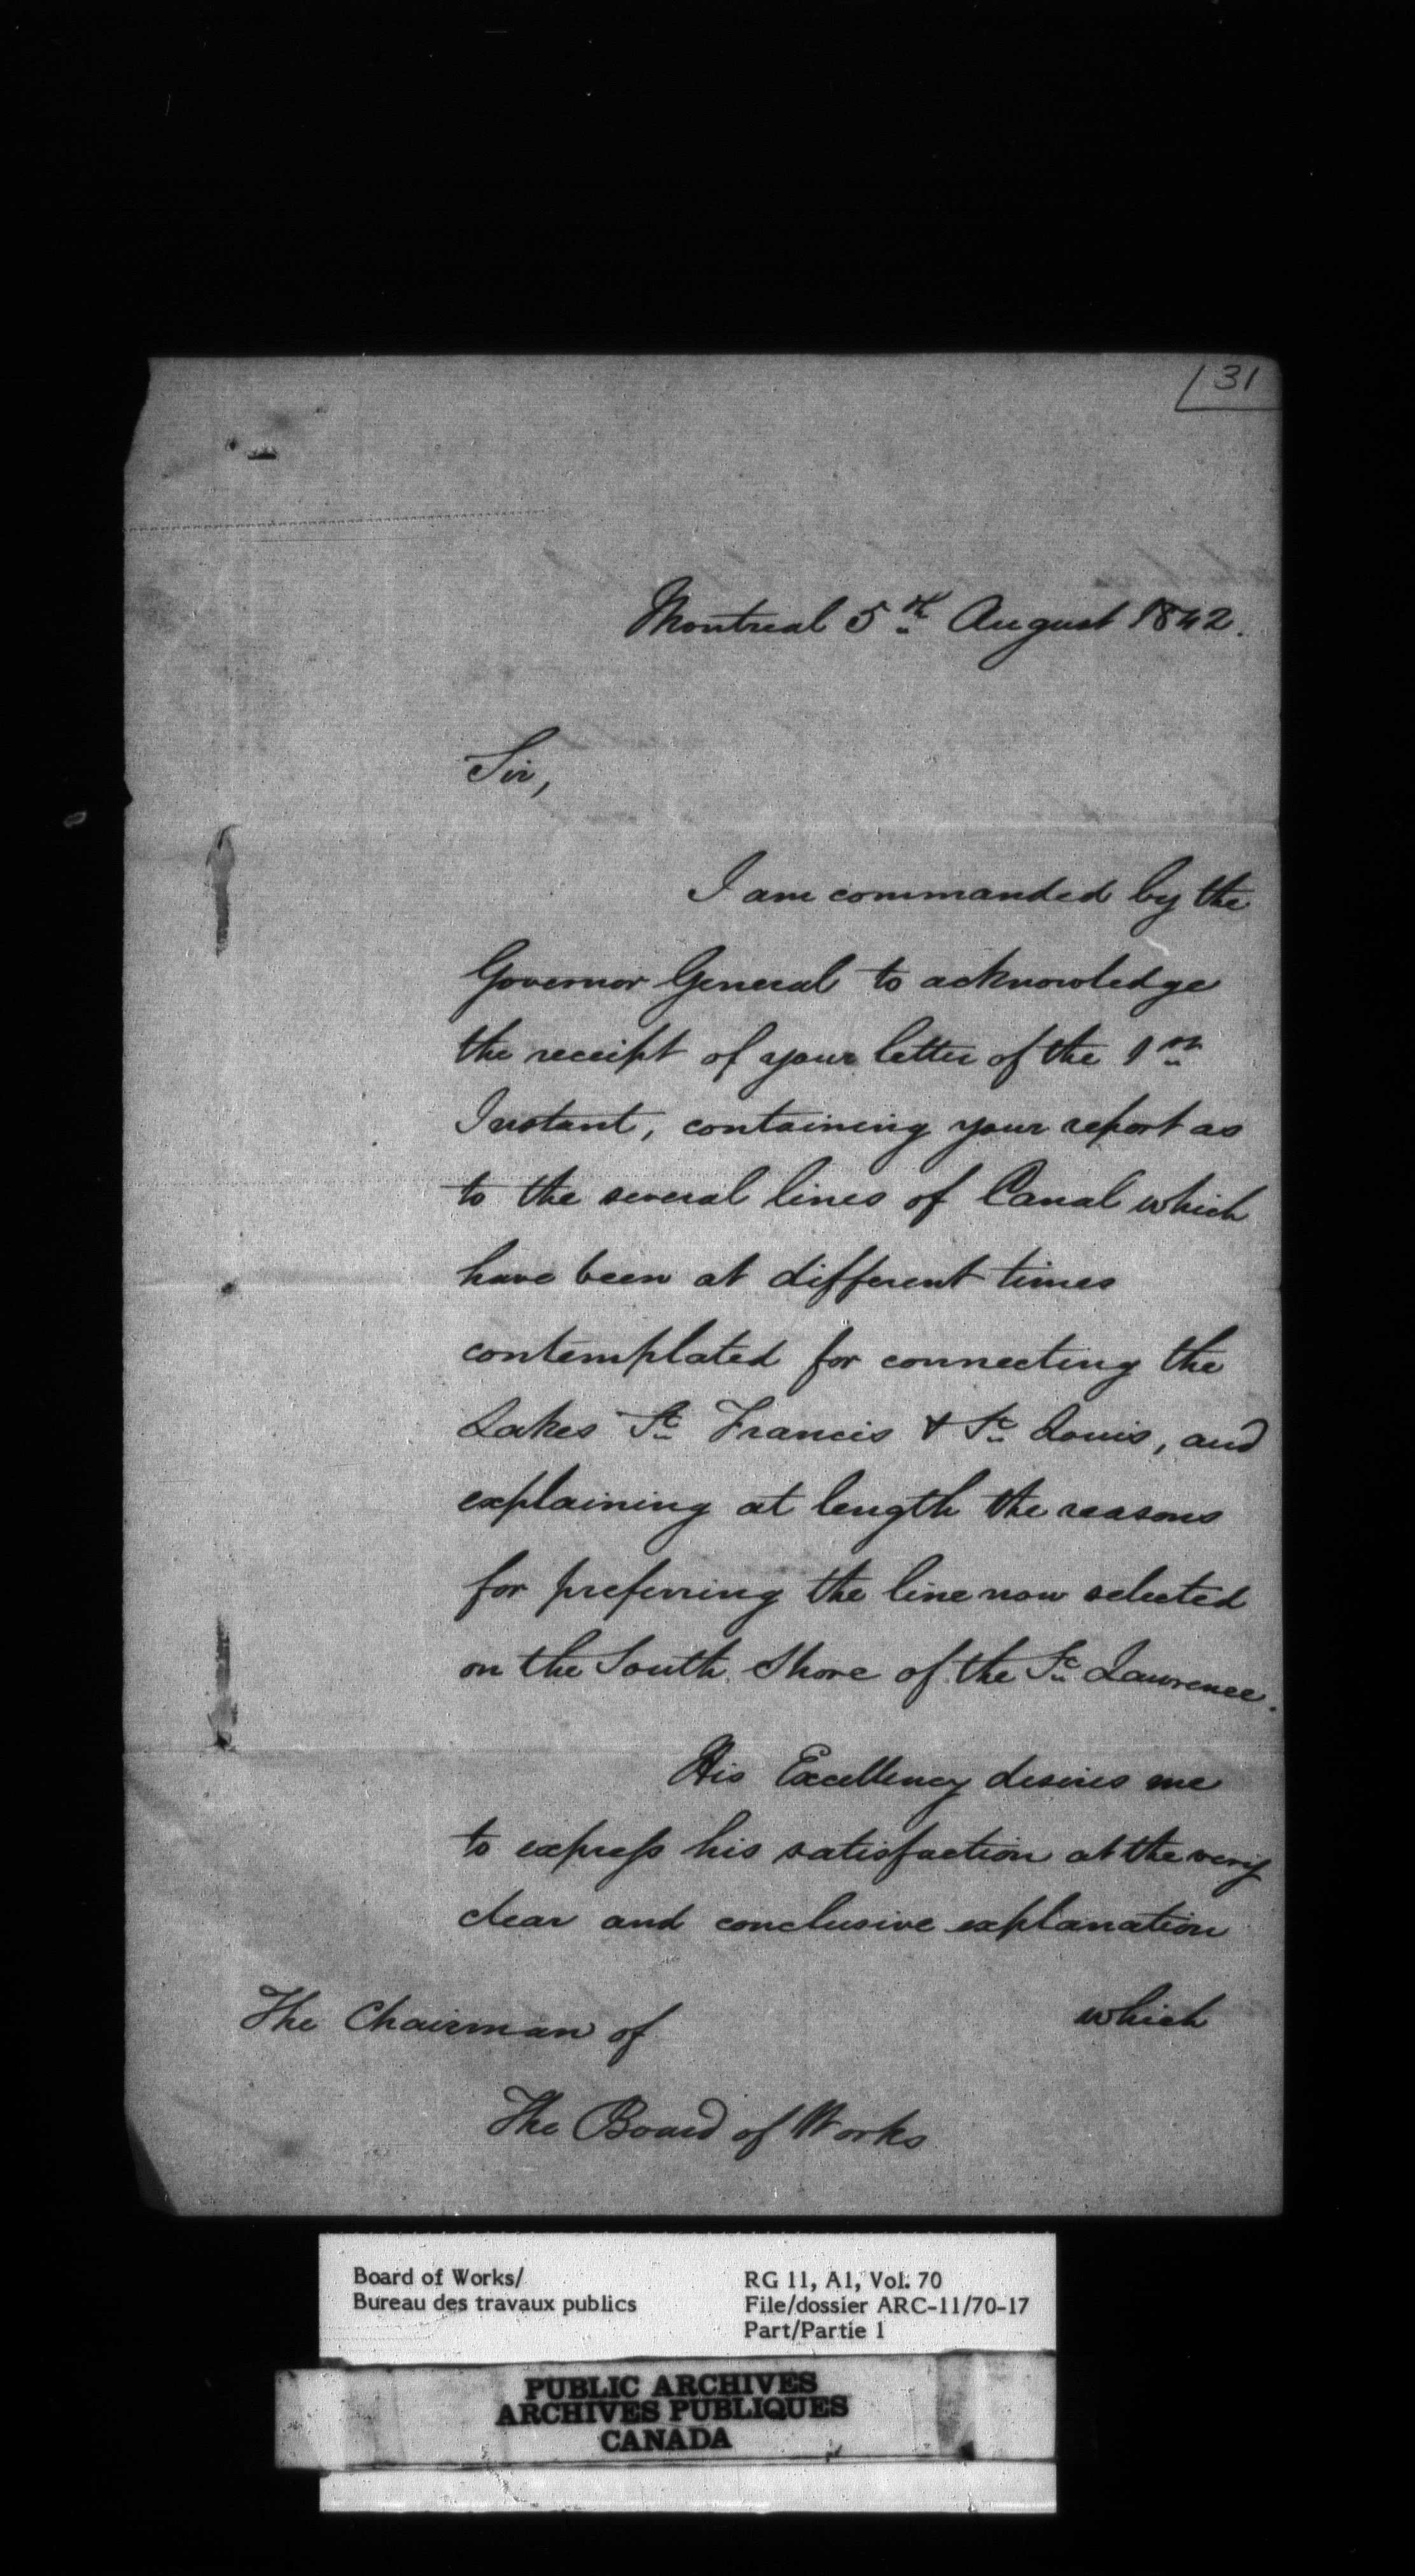 31
Montreal 5th August 1842.
Sir,
I am commanded by the
Governor General to acknowledge
the receipt of your letter of the 1st
Instant, containing your report as
to the several lines of Canal which
have been at different times
contemplated for connecting the
Lakes St Francis & St Louis, and
explaining at length the reasons
for preferring the line now selected
on the South Shore of the St Lawrence.
His Excellency desires me
to express his satisfaction at the very
clear and conclusive explanation
which
The Chairman of
The Board of Works
Board of Works/
Bureau des travaux publics
RG 11, A1, Vol. 70
File/dossier ARC-11/70-17
Part/Partie 1
PUBLIC ARCHIVES
ARCHIVES PUBLIQUES
CANADA